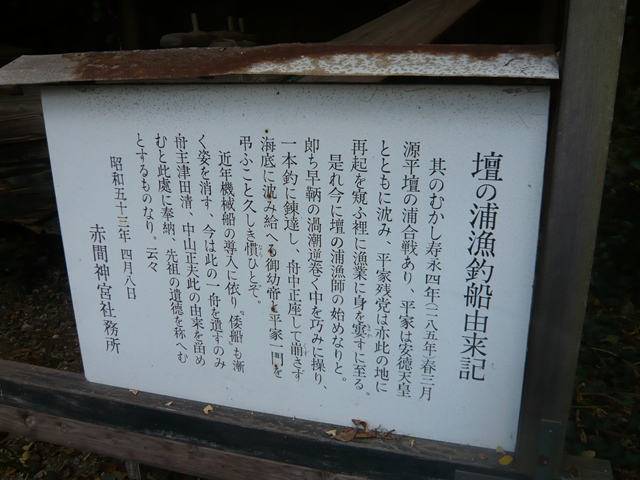 壇の浦漁釣船由来記
其のむかし寿永四年(一一八五年)春三月
源平壇の浦合戦あり、平家は安徳天皇
とともに沈み、平家残党は亦此の地に
再起を窺ふ裡に漁業に身を窶すに至る。
是れ今に壇の浦漁師の始めなりと。
即ち早鞆の渦潮逆巻く中を巧みに操り、
一本釣に錬達し、舟中正座して崩さず
海底に沈み給へる御幼帝と平家一門を
弔ふこと久しき慣ひとぞ。
近年機械船の導入に依り〝倭船〟も漸
く姿を消す、今は此の一舟を遺すのみ
舟主津田清、中山正夫此の由来を留め
むと此處に奉納、先祖の遺徳を称へむ
とするものなり。云々
昭和五十三年四月八日
赤間神宮社務所